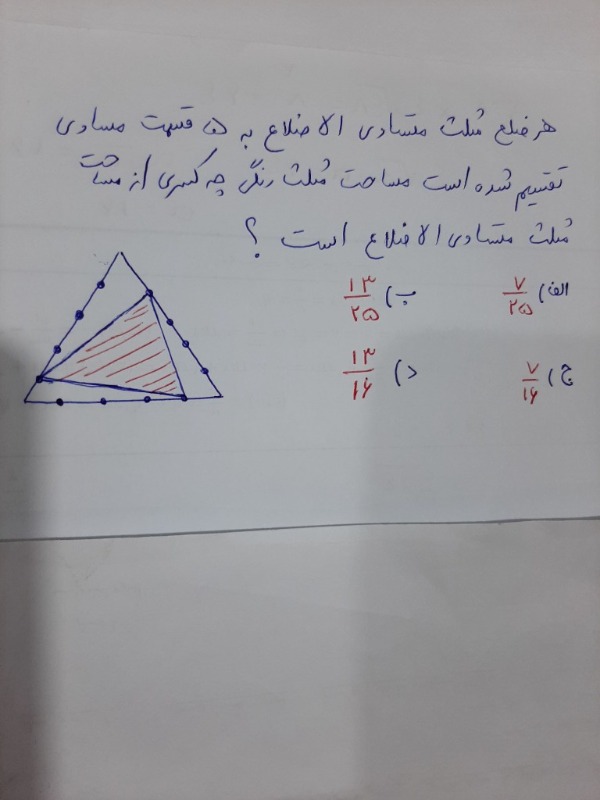 هر ضلع مثلث متساوی الاضلاع به ۵ قسمت مساوی
تقسیم شده است مساحت مثلث رنگی چه کسری از مساحت
مثلث متساوی الاضلاع است ؟
الف) ۷/۲۵ ب) ۱۳/۲۵
ج) ۷/۱۶ د) ۱۳/۱۶